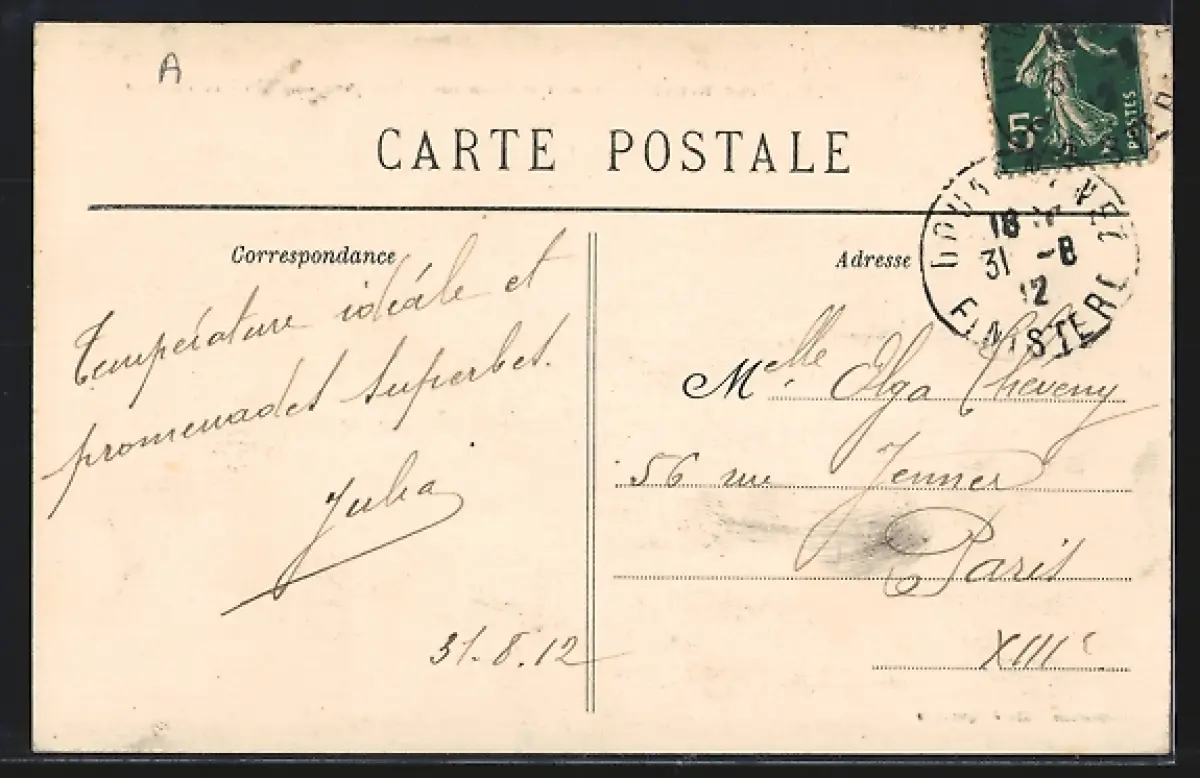 A
CARTE POSTALE
5c
POSTES
18
31 -8
12
FINISTERE
Correspondance
Température idéale et
promenades superbes.
Julia
31.8.12
Adresse
Melle Olga Cheveny
56 rue Jenner
Paris
XIIIe